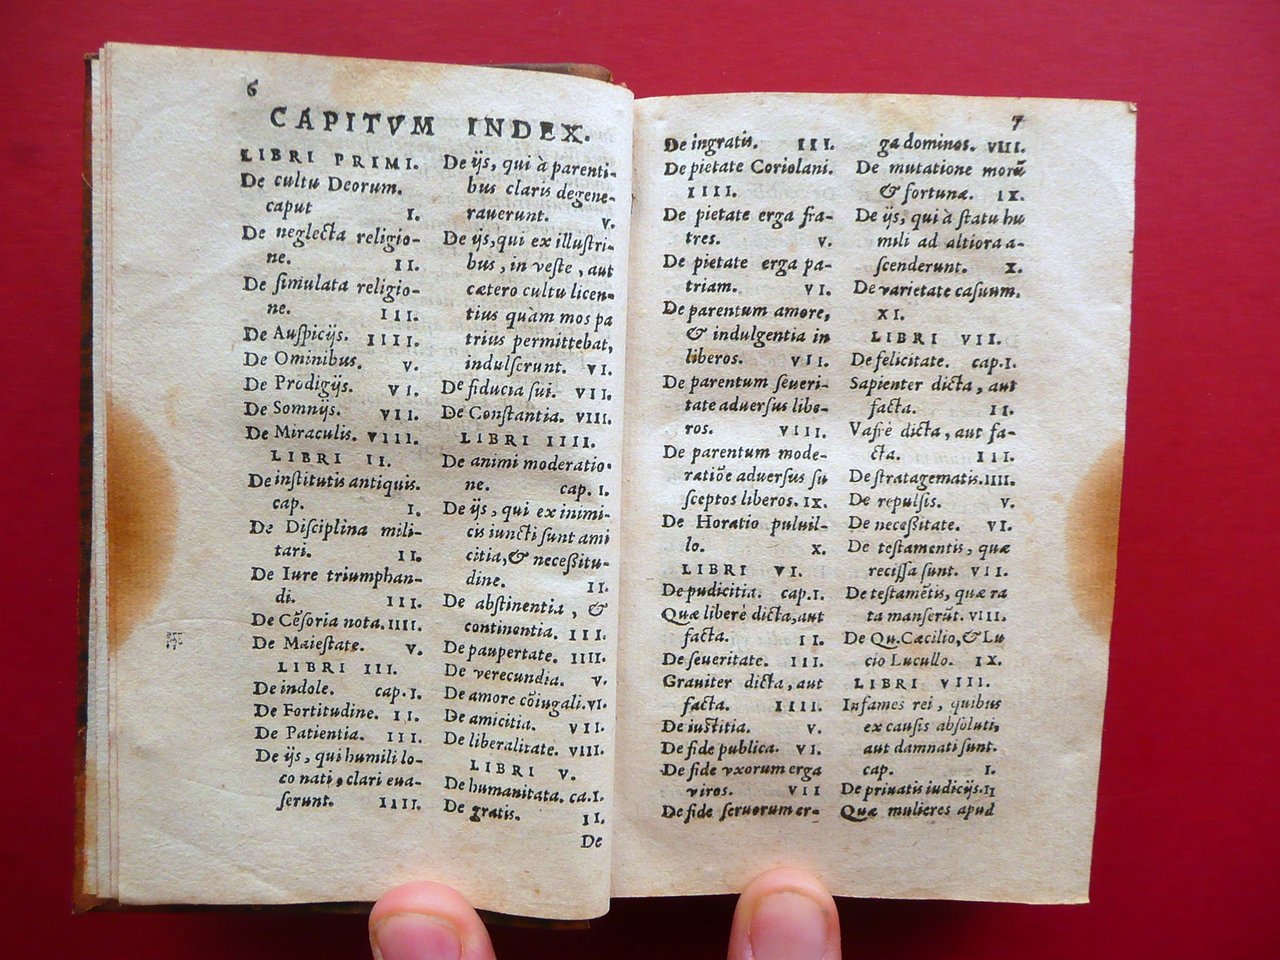 6
CAPITVM INDEX.
LIBRI PRIMI.
De cultu Deorum.
caput I.
De neglecta religio-
ne. II.
De simulata religio-
ne. III.
De Auspicijs. IIII.
De Ominibus. V.
De Prodigijs. VI.
De Somnijs. VII.
De Miraculis. VIII.
LIBRI II.
De institutis antiquis.
cap. I.
De Disciplina mili-
tari. II.
De Iure triumphan-
di. III.
De Cẽsoria nota. IIII.
De Maiestate. V.
LIBRI III.
De indole. cap. I.
De Fortitudine. II.
De Patientia. III.
De ijs, qui humili lo-
co nati, clari eua-
serunt. IIII.
De ijs, qui à parenti-
bus claris degene-
rauerunt. V.
De ijs, qui ex illustri-
bus, in veste, aut
cætero cultu licen-
tius quàm mos pa
trius permittebat,
indulserunt. VI.
De fiducia sui. VII.
De Constantia. VIII.
LIBRI IIII.
De animi moderatio-
ne. cap. I.
De ijs, qui ex inimi-
cis iuncti sunt ami
citia, & necessitu-
dine. II.
De abstinentia, &
continentia. III.
De paupertate. IIII.
De verecundia. V.
De amore cõiugali. VI.
De amicitia. VII.
De liberalitate. VIII.
LIBRI V.
De humanitata. ca. I.
De gratis. II.
De
7
De ingratis. III.
De pietate Coriolani.
IIII.
De pietate erga fra-
tres. V.
De pietate erga pa-
triam. VI.
De parentum amore,
& indulgentia in
liberos. VII.
De parentum seueri-
tate aduersus libe-
ros. VIII.
De parentum mode-
ratiõe aduersus su
sceptos liberos. IX.
De Horatio puluil-
lo. X.
LIBRI VI.
De pudicitia. cap. I.
Quæ liberè dicta, aut
facta. II.
De seueritate. III.
Grauiter dicta, aut
facta. IIII.
De iustitia. V.
De fide publica. VI.
De fide vxorum erga
viros. VII
De fide seruorum er-
ga dominos. VIII.
De mutatione morũ
& fortunæ. IX.
De ijs, qui à statu hu
mili ad altiora a-
scenderunt. X.
De varietate casuum.
XI.
LIBRI VII.
De felicitate. cap. I.
Sapienter dicta, aut
facta. II.
Vafrè dicta, aut fa-
cta. III.
De stratagematis. IIII.
De repulsis. V.
De necessitate. VI.
De testamentis, quæ
recissa sunt. VII.
De testamẽtis, quæ ra
ta manserũt. VIII.
De Qu. Cæcilio, & Lu
cio Lucullo. IX.
LIBRI VIII.
Infames rei, quibus
ex causis absoluti,
aut damnati sunt.
cap. I.
De priuatis iudicijs. II
Quæ mulieres apud